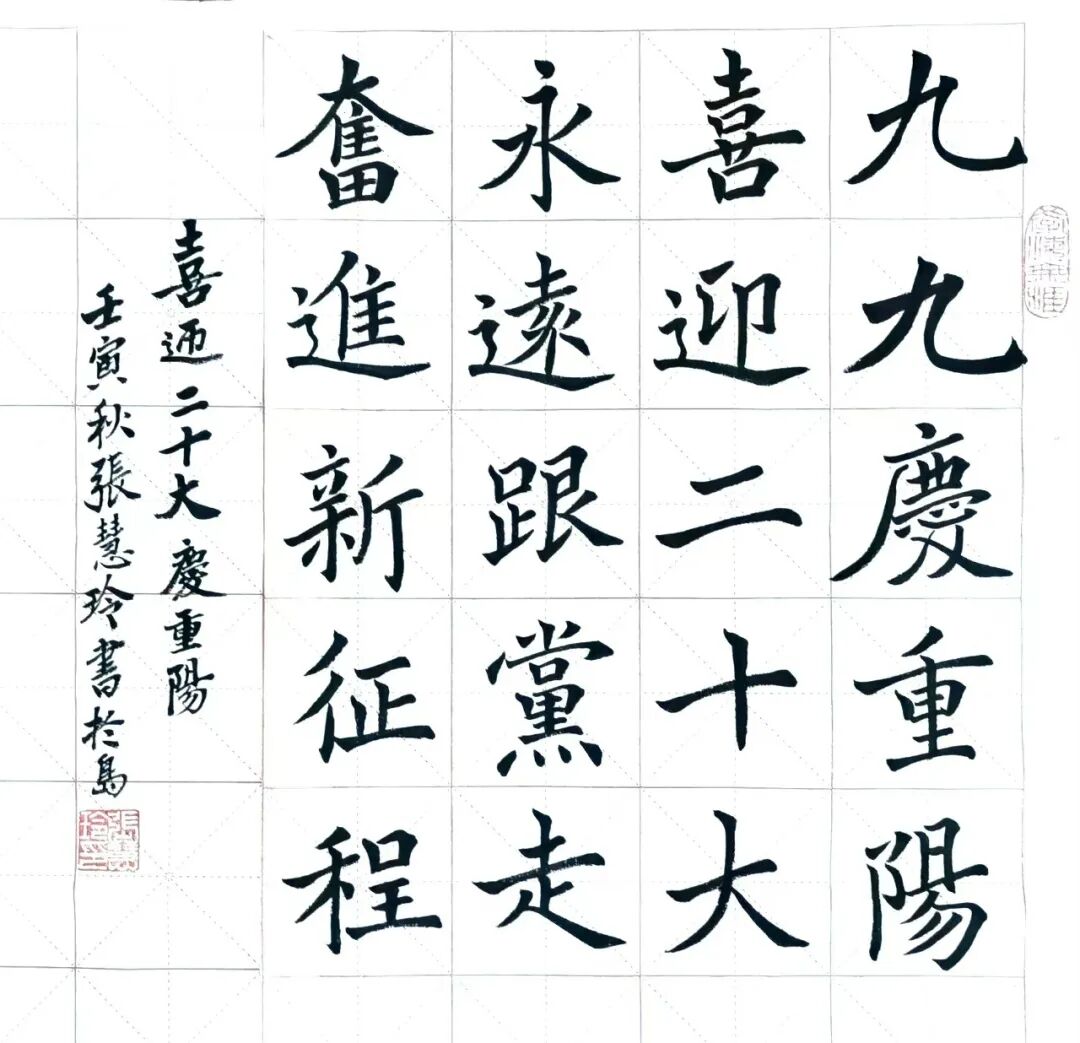 九九慶重陽
喜迎二十大
永遠跟黨走
奮進新征程
喜迊二十大慶重陽
壬寅秋張慧玲書於島